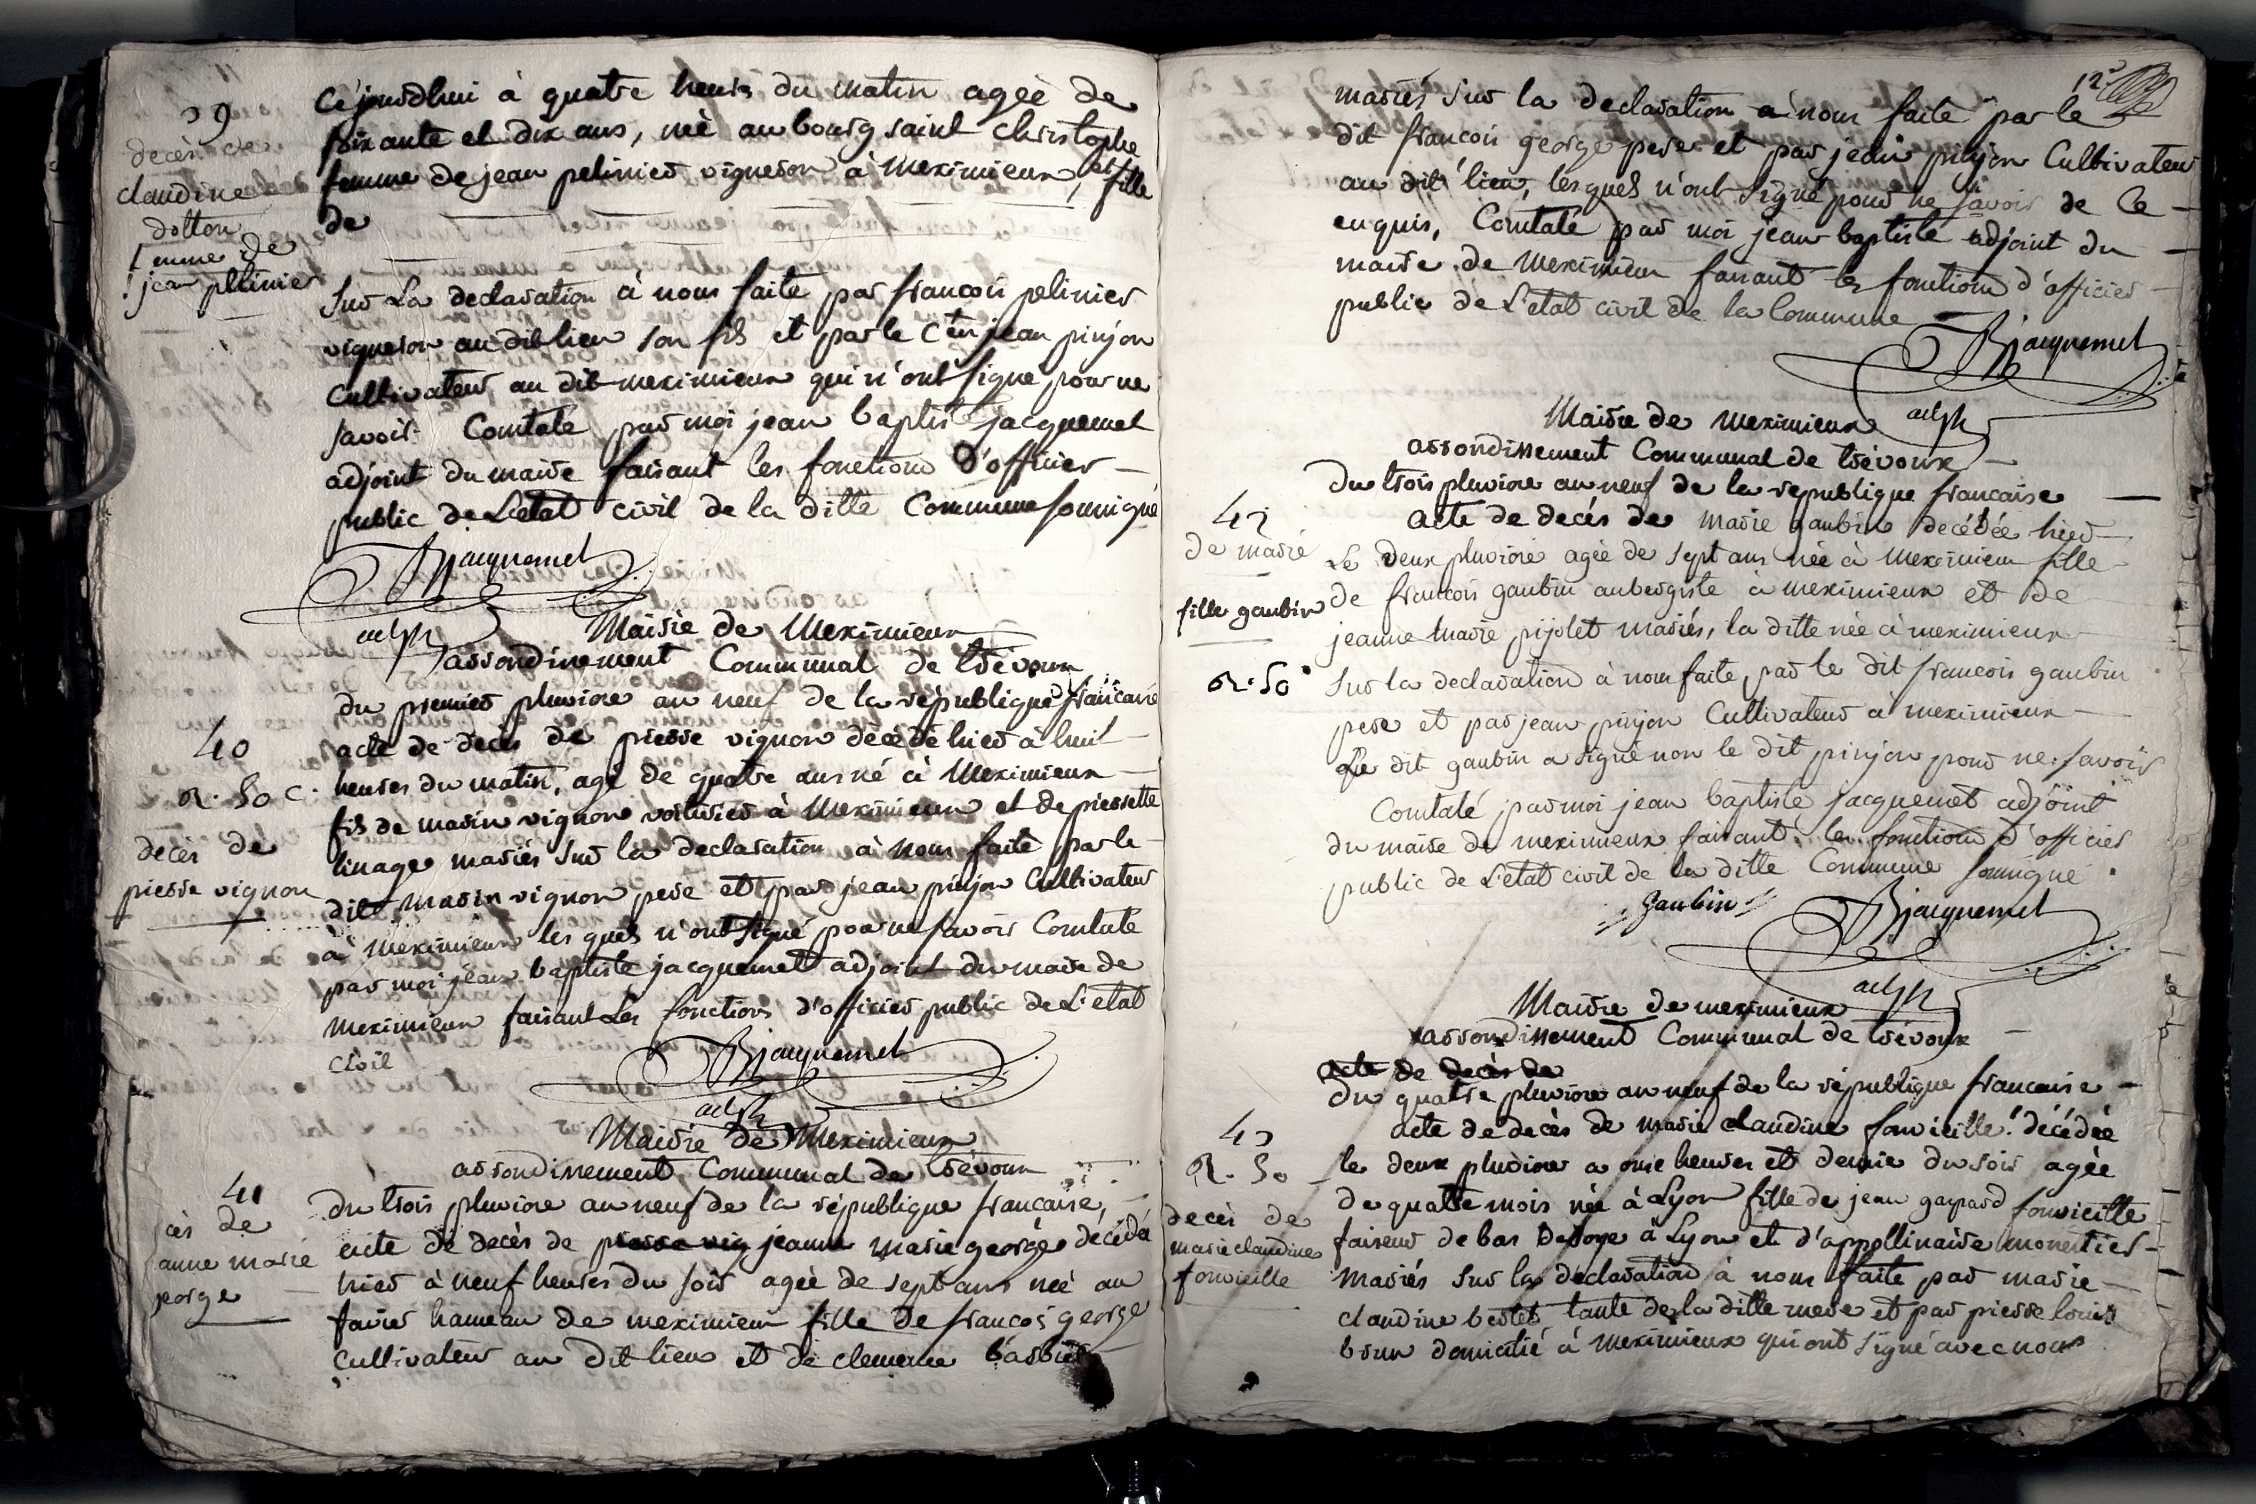 39
decès de
claudine
dotton
femme de
jean pllinier
Cejourdhui à quatre heures du matin agée de
soixante et dix ans, née au bourg saint christophe
femme de jean pelinier vigneron à Meximieux, et fille
de
Sur La declaration à nous faite par francois pelinier
vigneron au dit lieu son fils et par le C.en jean pinjon
Cultivateur au dit meximieux qui n'ont signe pour ne
savoir. Constate par moi jean baptiste jacquemet
adjoint du maire faisant les fonctions d'officier
public de L'etat civil de la ditte Commune soussigné
Bjacquemet
adjt
Mairie de Meximieux
arrondissement Communal de trévoux
40
R. 50 c.
decès de
pierre vignon
du premier pluviose an neuf de la république francaise
acte de decès de pierre vignon décédé hier à huit
heures du matin, agé de quatre ans né à Meximieux
fils de marin vignon voiturier à Meximieux et de pierrette
linage mariés Sur la declaration à nous faite par le
dit marin vignon pere et par jean pinjon Cultivateur
à meximieux les quels n'ont signé pour ne savoir Constate
par moi jean baptiste jacquemet adjoint du maire de
meximieux faisant Les fonctions d'officier public de L'etat
civil
Bjacquemet
adjt
Mairie de Meximieux
arrondissement Communal de trévoux
41
cès de
anne marie
george
du trois pluviose an neuf de la république francaise,
acte de decès de pierre vig jeanne marie george décédé
hier à neuf heures du soir agée de sept ans née au
favier hameau de meximieux fille de francois george
Cultivateur au dit lieu et de clemence barbier
12
mariés Sur la declaration à nous faite par le
dit francois george pere et par jean pinjon Cultivateur
au dit lieu, lesquels n'ont signé pour ne savoir de Ce
enquis, Constaté par moi jean baptiste adjoint du
maire de meximieux faisant les fonctions d'officier
public de L'etat civil de la Commune
Bjacquemet
adjt
Mairie de meximieux
arrondissement Communal de trévoux
42
de marie
fille gaubin
R. 50
Du trois pluviose an neuf de la republique francaise
acte de decès de marie gaubin decédée hier
Le deux pluviose agée de sept ans née à Meximieux fille
de francois gaubin aubergiste à meximieux et de
jeanne marie pijolet mariés, la ditte née à meximieux
Sur la declaration à nous faite, par le dit francois gaubin
pere et par jean pinjon Cultivateur à meximieux
Le dit gaubin a signé non le dit pinjon pour ne savoir
Constaté par moi jean baptiste jacquemet adjoint
du maire de meximieux faisant les fonctions d'officier
public de L'etat civil de la ditte Commune soussigné
Gaubin
Bjacquemet
adjt
Mairie de meximieux
arrondissement Communal de trévoux
acte de decès de
43
R. 50
decès de
marie claudine
fonvieille
Du quatre pluviose an neuf de la république francaise
acte de decès de marie claudine fonvieille décédée
le deux pluviose a onze heures et demie du soir agée
de quatre mois née à Lyon fille de jean gaspard fonvieille
faiseur de bas De soye à Lyon et d'appollinaire monestier
mariés Sur la declaration à nous faite par marie
claudine bertet tante de la ditte mere et par pierre louis
brun domicilié à meximieux qui ont signé avec nous